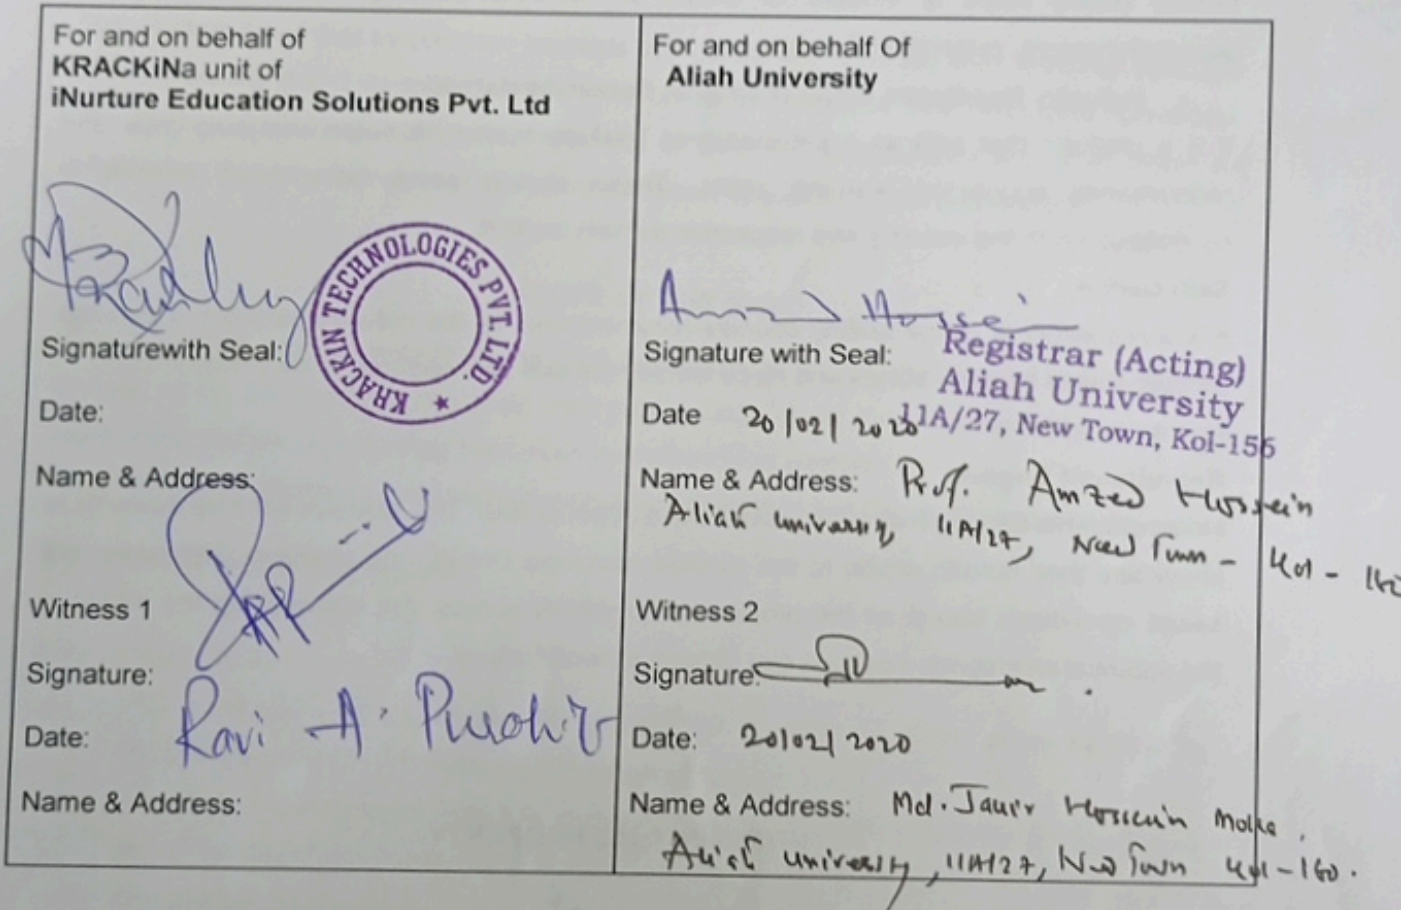 For and on behalf of
KRACKiNa unit of
iNurture Education Solutions Pvt. Ltd
KRACKIN TECHNOLOGIES PVT. LTD.
Signaturewith Seal:
Date:
Name & Address:
Witness 1
Signature:
Date: Ravi A. Purohit
Name & Address:
For and on behalf Of
Aliah University
Hossein
Signature with Seal:
Registrar (Acting)
Aliah University
11A/27, New Town, Kol-156
Date 20/02/2020
Name & Address: Prof. Amzed Hossein
Aliah University, 11A/27, New Town - Kol - 160
Witness 2
Signature:
Date: 20/02/2020
Name & Address: Md. Hossein
Aliah University, 11A/27, New Town Kol-160.